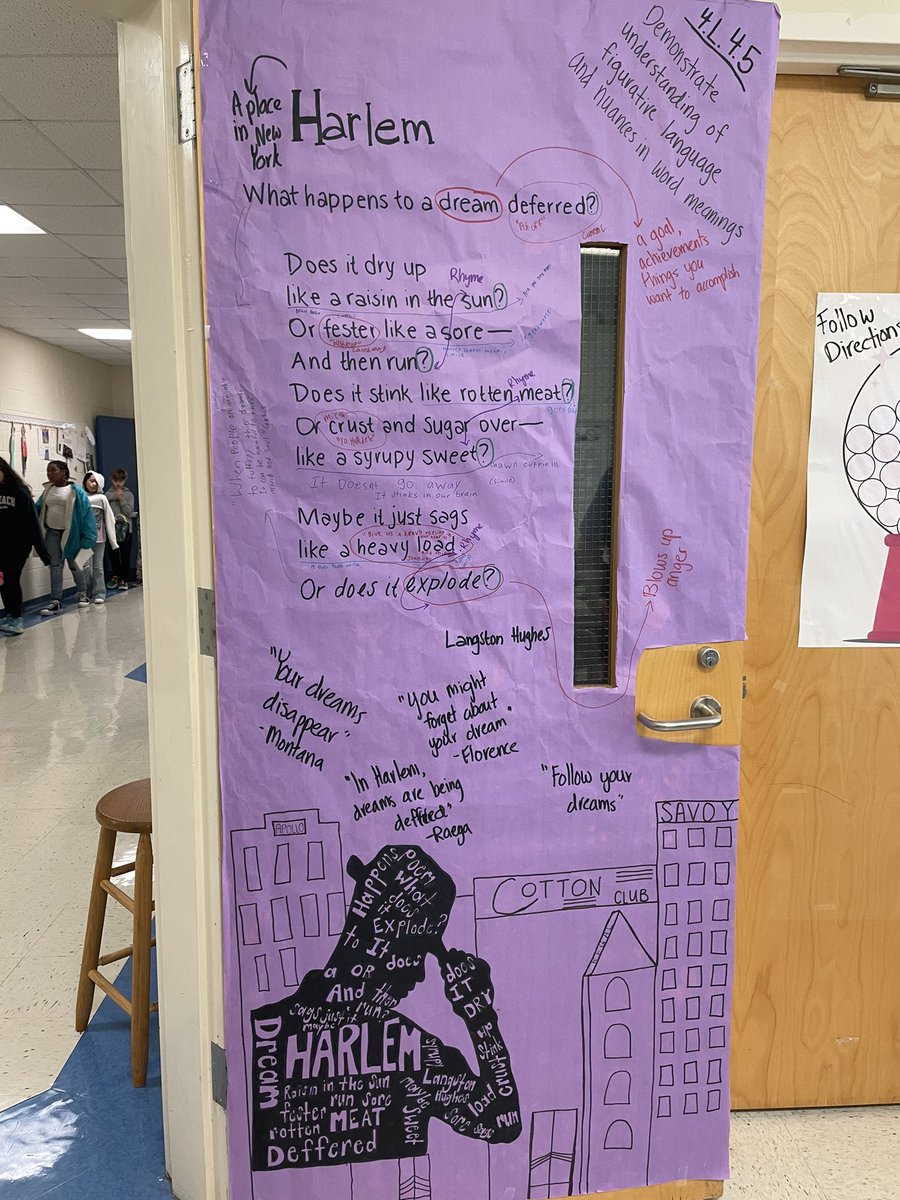 4.L.4.5
Demonstrate
understanding of
figurative language
and nuances in word meanings
A place
in New
York
Harlem
What happens to a dream deferred?
"Put off"
a goal,
achievements
things you
want to accomplish
Does it dry up
Rhyme
like a raisin in the sun?
Or fester like a sore—
And then run?
Rhyme
Does it stink like rotten meat?
Or crust and sugar over—
"To Harden"
like a syrupy sweet?
It Doesnt go away
(simile)
It stinks in our brain
Maybe it just sags
like a heavy load.
Rhyme
Or does it explode?
Blows up
anger
Langston Hughes
"Your dreams
disappear"
-Montana
"You might
forget about
your dream"
-Florence
"In Harlem,
dreams are being
deffered"
-Raega
"Follow your
dreams"
APOLLO
COTTON
CLUB
SAVOY
Happens
Poem
What
does
it
EXPLODE?
to It
a OR does
And then
sags just it run?
maybe
HARLEM
Dream
Raisin in the sun
fester run sore
rotten MEAT
Deffered
syrup
Langston
Hughes
maybe
Sweet
does
IT DRY
stink
crust
load
sore
run
Follow
Directions